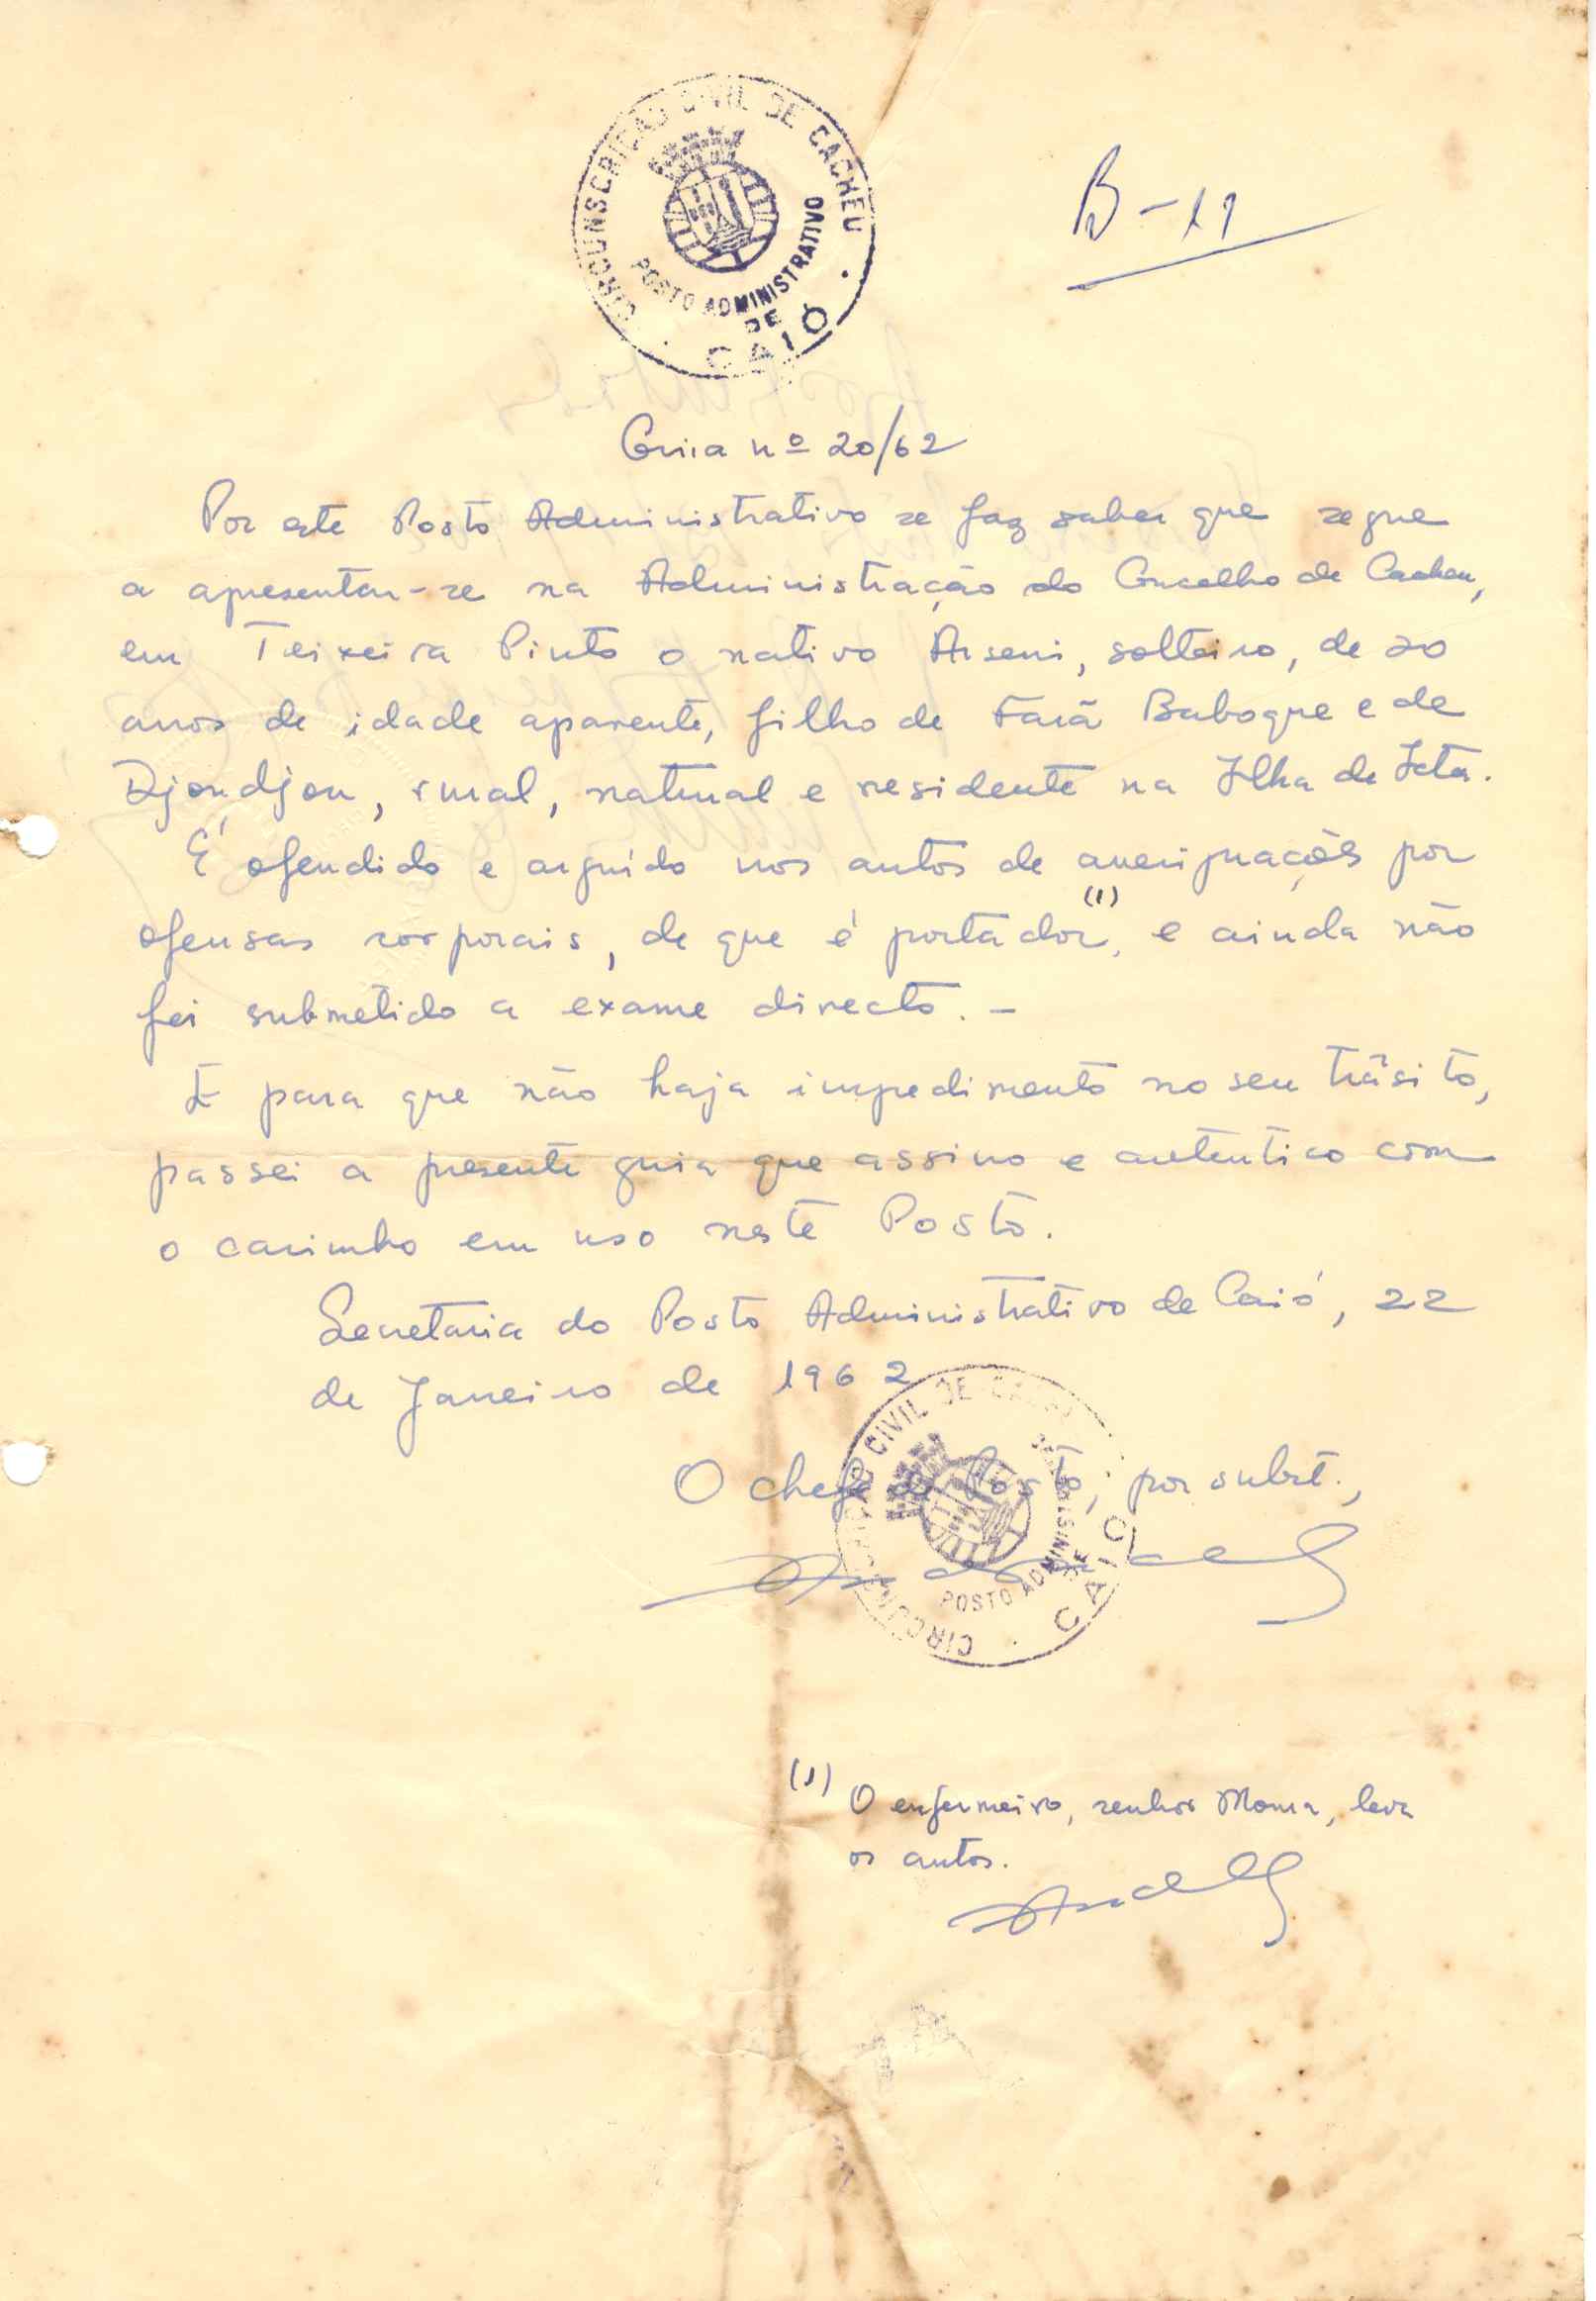 CIRCUNSCRIÇÃO CIVIL DE CACHEU
POSTO ADMINISTRATIVO
DE
CAIÓ
B-11
Guia nº 20/62
Por este Posto Administrativo se faz saber que segue
a apresentar-se na Administração do Concelho de Cacheu,
em Teixeira Pinto o nativo Arseni, solteiro, de 20
anos de idade aparente, filho de Fará Baboque e de
Djondjon, rural, natural e residente na Ilha de Jeta.
É ofendido e arguido nos autos de averiguações por
ofensas corporais, de que é portador (1), e ainda não
foi submetido a exame directo. -
E para que não haja impedimento no seu trâsito,
passei a presente guia que assino e autentico com
o carimbo em uso neste Posto.
Secretaria do Posto Administrativo de Caió, 22
de Janeiro de 1962
O chefe de Posto, por subst.,
CIRCUNSCRIÇÃO CIVIL DE CACHEU
POSTO ADMINISTRATIVO
DE
CAIÓ
(1) O enfermeiro, senhor Moura, leva
os autos.